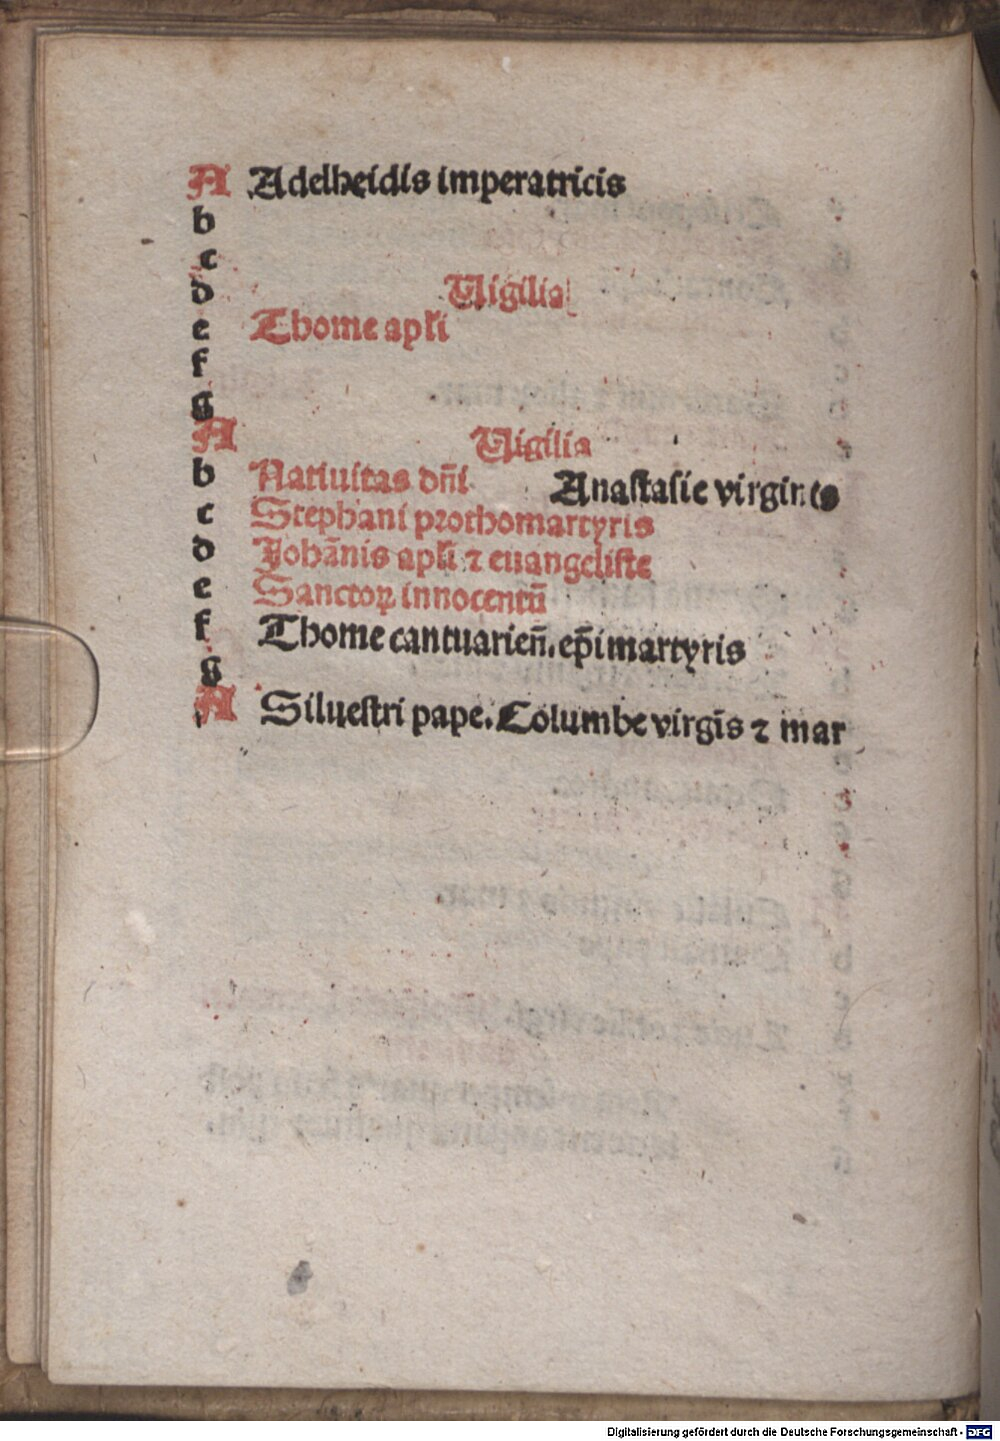 A Adelheidis imperatricis
b
c
d Uigilia
e Thome apl̄i
f
g
A Uigilia
b Natiuitas dn̄i Anastasie virginis
c Stephani prothomartyris
d Joh̄annis apl̄i ⁊ euangeliste
e Sanctoꝝ innocentū
f Thome cantuarien̄. ep̄i martyris
g
A Siluestri pape. Columbe virgīs ⁊ mar
Digitalisierung gefördert durch die Deutsche Forschungsgemeinschaft - DFG